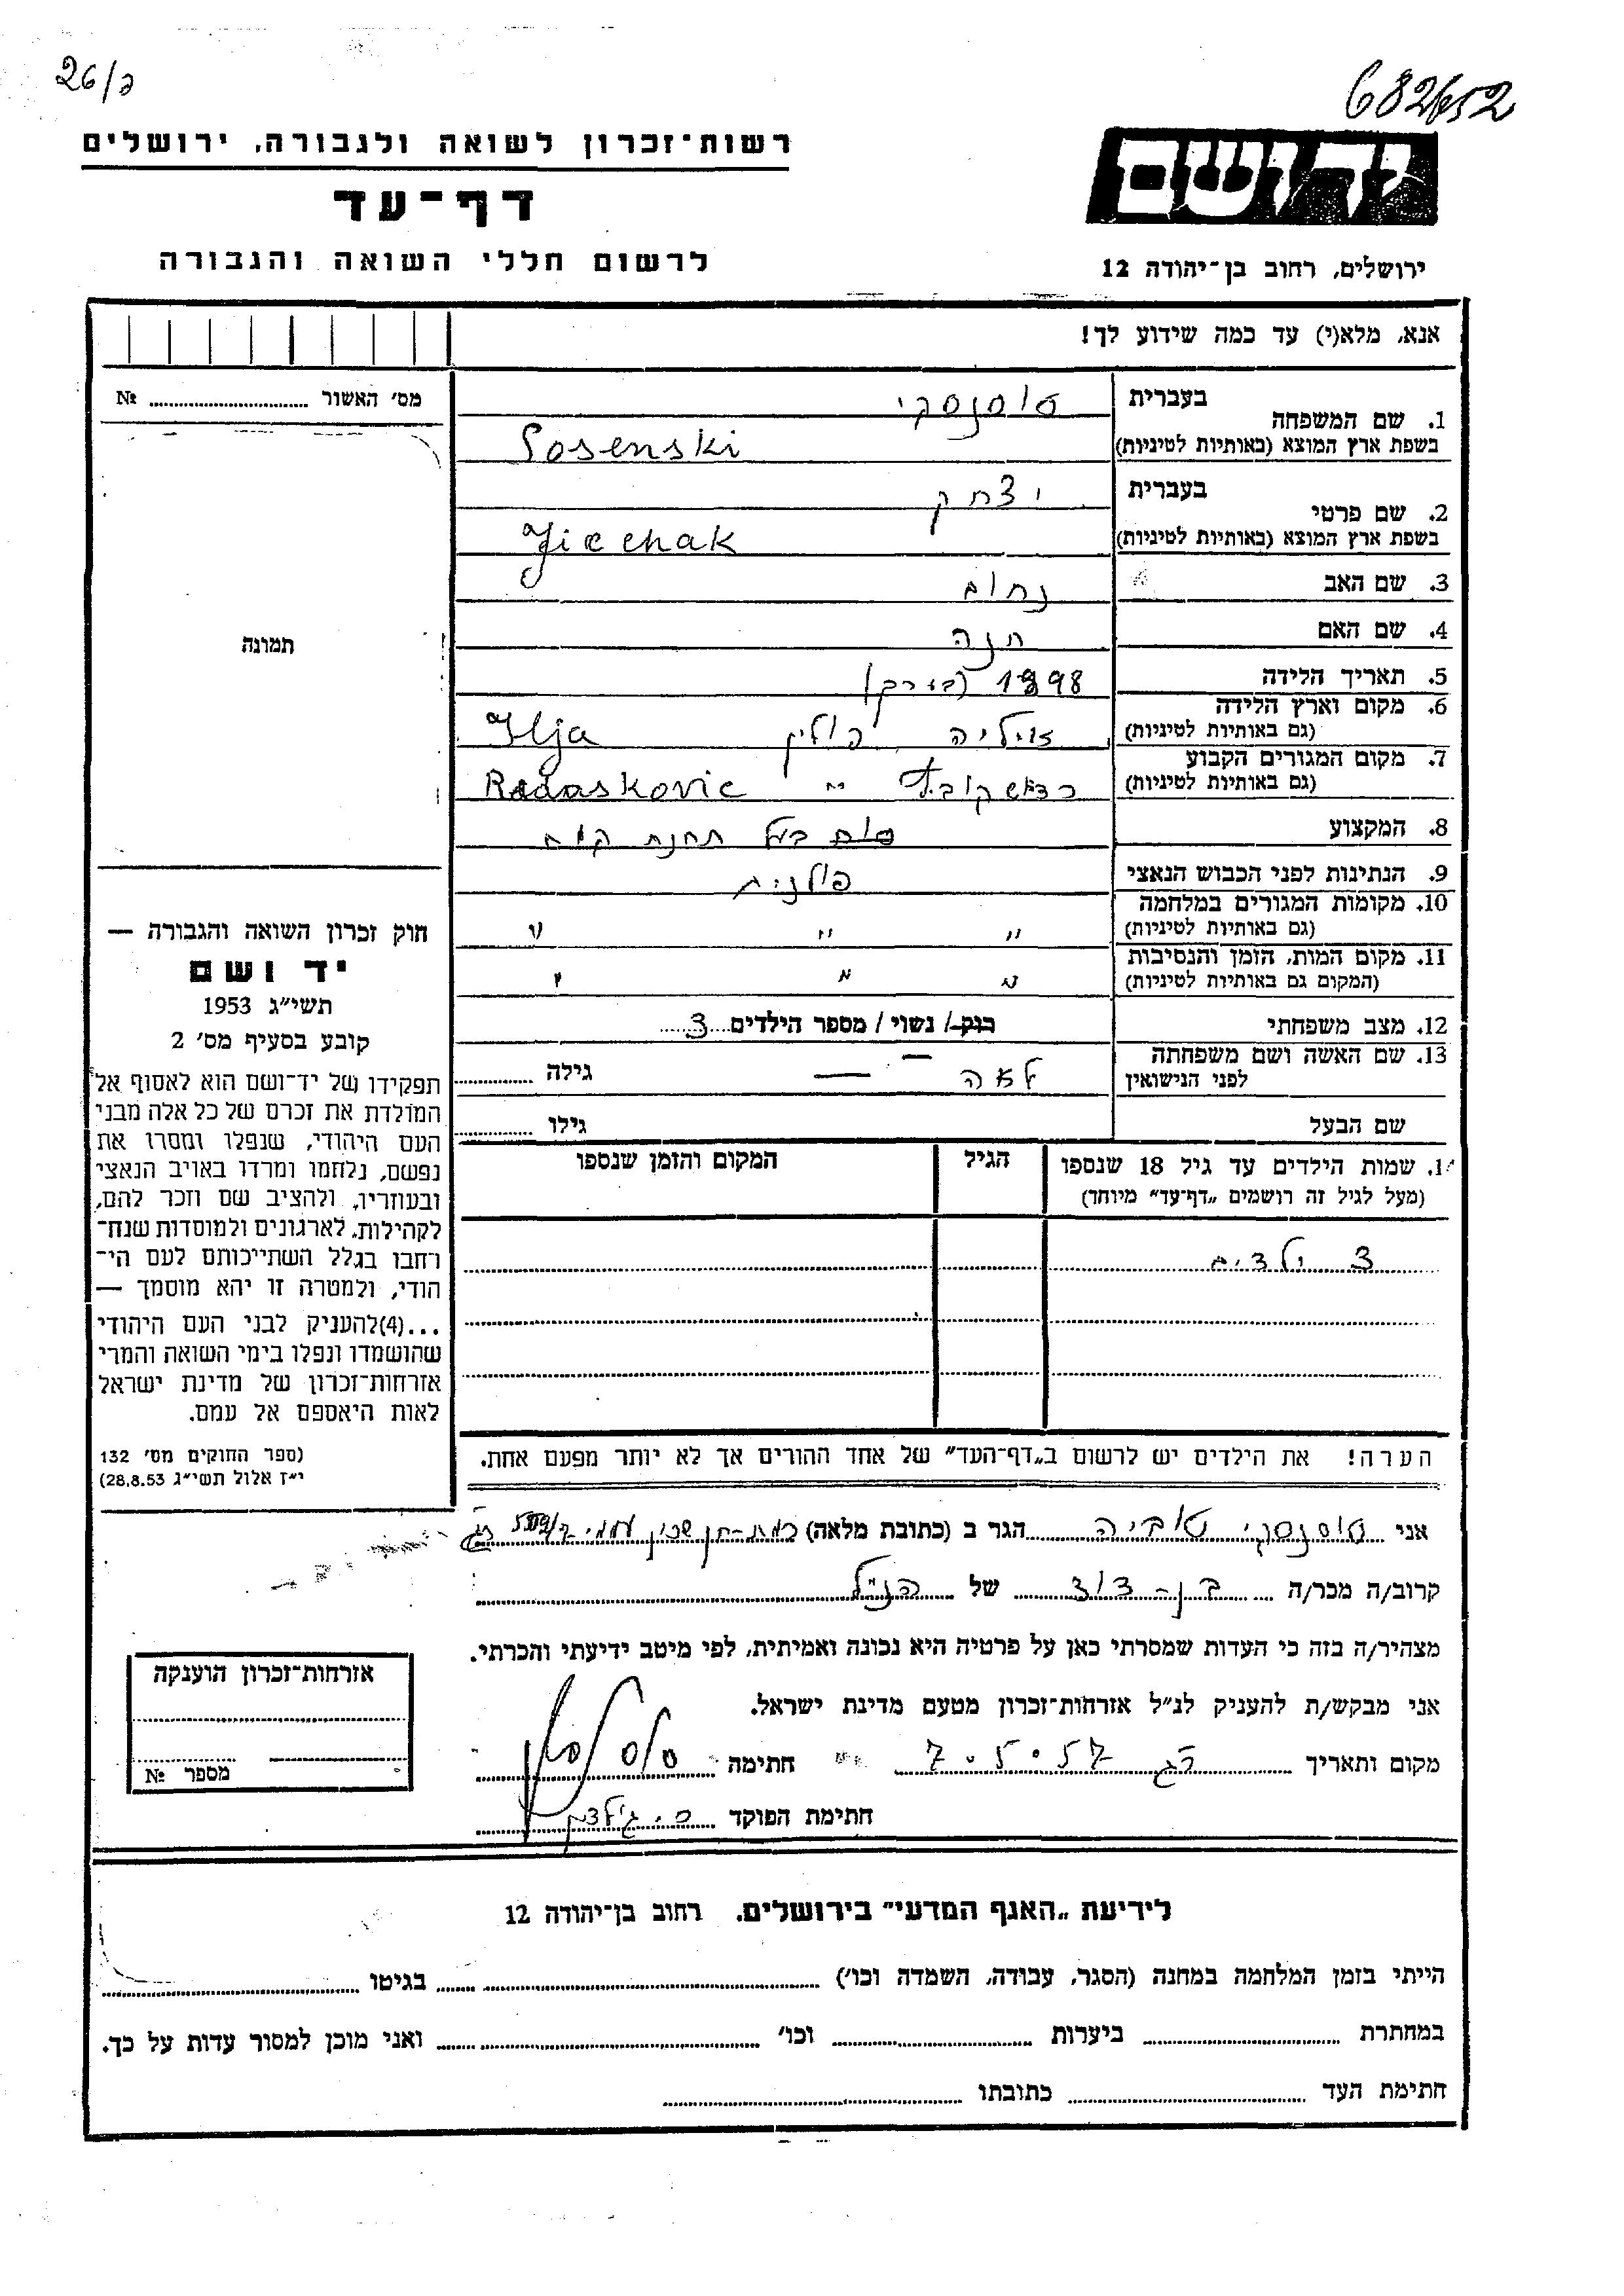 26/ד
682652
רשות־זכרון לשואה ולגבורה, ירושלים
דף־עד
לרשום חללי השואה והגבורה
יד ושם
ירושלים, רחוב בן־יהודה 12
אנא, מלא(י) עד כמה שידוע לך!
מס׳ האשור № ........
תמונה
1. שם המשפחה
בעברית סוסנסקי
בשפת ארץ המוצא (באותיות לטיניות) Sosenski
2. שם פרטי
בעברית יצחק
בשפת ארץ המוצא (באותיות לטיניות) Jicchak
3. שם האב נחום
4. שם האם חנה
5. תאריך הלידה 1898 (בערך)
6. מקום וארץ הלידה
(גם באותיות לטיניות) פולין Ilja
7. מקום המגורים הקבוע
(גם באותיות לטיניות) " Radaskovic
8. המקצוע בעל תחנת קמח
9. הנתינות לפני הכבוש הנאצי פולנית
10. מקומות המגורים במלחמה
(גם באותיות לטיניות) " " "
11. מקום המות, הזמן והנסיבות
(המקום גם באותיות לטיניות) " " "
12. מצב משפחתי רוק / נשוי / מספר הילדים 3
13. שם האשה ושם משפחתה
לפני הנישואין לאה — גילה ........
שם הבעל גילו ........
שמות הילדים עד גיל 18 שנספו הגיל המקום והזמן שנספו
(מעל לגיל זה רושמים „דף־עד״ מיוחד)
3 ילדים
הערה! את הילדים יש לרשום ב„דף־העד״ של אחד ההורים אך לא יותר מפעם אחת.
חוק זכרון השואה והגבורה —
יד ושם
תשי״ג 1953
קובע בסעיף מס׳ 2
תפקידו של יד־ושם הוא לאסוף אל
המולדת את זכרם של כל אלה מבני
העם היהודי, שנפלו ומסרו את
נפשם, נלחמו ומרדו באויב הנאצי
ובעוזריו, ולהציב שם וזכר להם,
לקהילות, לארגונים ולמוסדות שנח־
רחבו בגלל השתייכותם לעם הי־
הודי, ולמטרה זו יהא מוסמך —
...(4)להעניק לבני העם היהודי
שהושמדו ונפלו בימי השואה והמרי
אזרחות־זכרון של מדינת ישראל
לאות היאספם אל עמם.
(ספר החוקים מס׳ 132
י״ז אלול תשי״ג 28.8.53)
אני סוסנסקי טוביה הגר ב (כתובת מלאה) רמת-חן שכון עממי רג
קרוב/ה מכר/ה בן-דוד של הנ״ל
מצהיר/ה בזה כי העדות שמסרתי כאן על פרטיה היא נכונה ואמיתית, לפי מיטב ידיעתי והכרתי.
אני מבקש/ת להעניק לנ״ל אזרחות־זכרון מטעם מדינת ישראל.
מקום ותאריך רג 7.5.57 חתימה
חתימת הפוקד
אזרחות־זכרון הוענקה
מספר №
לידיעת „האגף המדעי״ בירושלים, רחוב בן־יהודה 12
הייתי בזמן המלחמה במחנה (הסגר, עבודה, השמדה וכו׳) ........ בגיטו ........
במחתרת ........ ביערות ........ וכו׳ ........ ואני מוכן למסור עדות על כך.
חתימת העד ........ כתובתו ........